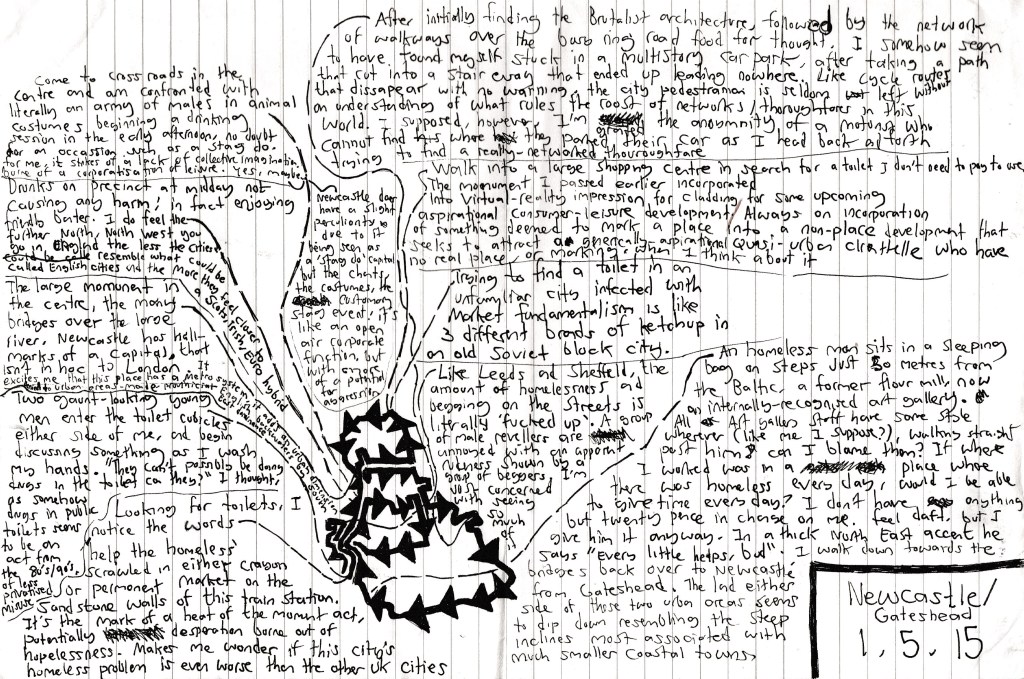 After initially finding the Brutalist architecture, followed by the network
of walkways over the busy ring road food for thought, I somehow seem
to have found myself stuck in a multistory car park, after taking a path
that cut into a stairway that ended up leading nowhere. Like cycle routes
that dissapear with no warning, the city pedestrian is seldom left without
an understanding of what rules the roost of networks/thoroughfares in this
world. I supposed, however, I'm granted the anonymity of a motorist who
cannot find where they parked their car as I head back and forth
trying to find a really-networked thouroughfare
Come to crossroads in the
centre and am confronted with
literally an army of males in animal
costumes beginning a drinking
session in the early afternoon, no doubt
for an occassion such as a stag do.
For me, it stakes of a lack of collective imagination,
borne of a corporatisation of leisure. Yes, maybe
Drunks on precinct at midday not
causing any harm; in fact enjoying
friendly banter. I do feel the
further North, North west you
go in England the less the cities
could be called resemble what could be
called English cities and the more they feel closer to
a Scots, Irish, Euro hybrid
The large monument in
the centre, the many
bridges over the large
river, Newcastle has hall-
marks of a Capital that
isn't in hoc to London. It
excites me that this place has a Metro system,
Two gaunt-looking young
men enter the toilet cubicles
either side of me, and begin
discussing something as I wash
my hands. "They can't possibly be doing
drugs in the toilet can they?" I thought,
as somehow
drugs in public
toilets seems
to be an
act from
the 80's/90's,
of less
privatised
misuse
Looking for toilets, I
notice the words
'help the homeless'
scrawled in either crayon
or permanent market on the
Sandstone walls of this train station.
It's the mark of a heat of the moment act,
potentially desperation borne out of
hopelessness. Makes me wonder if this city's
homeless problem is even worse than the other UK cities
Newcastle does
have a slight
peculiarity
due to it
being seen as
a 'stag do' capital
but the chants,
the costumes, the
customary
stag event, it's
like an open
air corporate
function, but
with more
of a potential
for aggression
Walk into a large shopping centre in search for a toilet I don't need to pay to use
The monument I passed earlier incorporated
into virtual-reality impression for cladding for some upcoming
aspirational consumer-leisure development. Always on incorporation
of something deemed to mark a place into a non-place development that
seeks to attract a generically aspirational quasi-urban clientelle who have
no real place of marking, when I think about it
Trying to find a toilet in an
unfamiliar city infected with
market fundamentalism is like
3 different brands of ketchup in
an old Soviet block city.
Like Leeds and Sheffield, the
amount of homelessness and
begging on the streets is
literally 'fucked up'. A group
of male revellers are
unnoyed with an apparent
rudeness shown by a
group of beggars. I'm
concerned
with seeing
so
much
of
An homeless man sits in a sleeping
bag on steps just 30 metres from
the Baltic, a former flour mill, now
an internally-recognised art gallery.
All Art gallery staff have same style
wherever (like me I suppose?), walking straight
past him; can I blame them? If where
I worked was in a place where
there was homeless every day, would I be able
to give time every day? I don't have anything
but twenty pence in change on me. feel daft, but I
give him it anyway. In a thick North East accent he
says "Every little helps, bud". I walk down towards the
bridges back over to Newcastle
from Gateshead. The land either
side of these two urban areas seems
to dip down resembling the steep
inclines most associated with
much smaller coastal towns,
Newcastle/
Gateshead
1.5.15